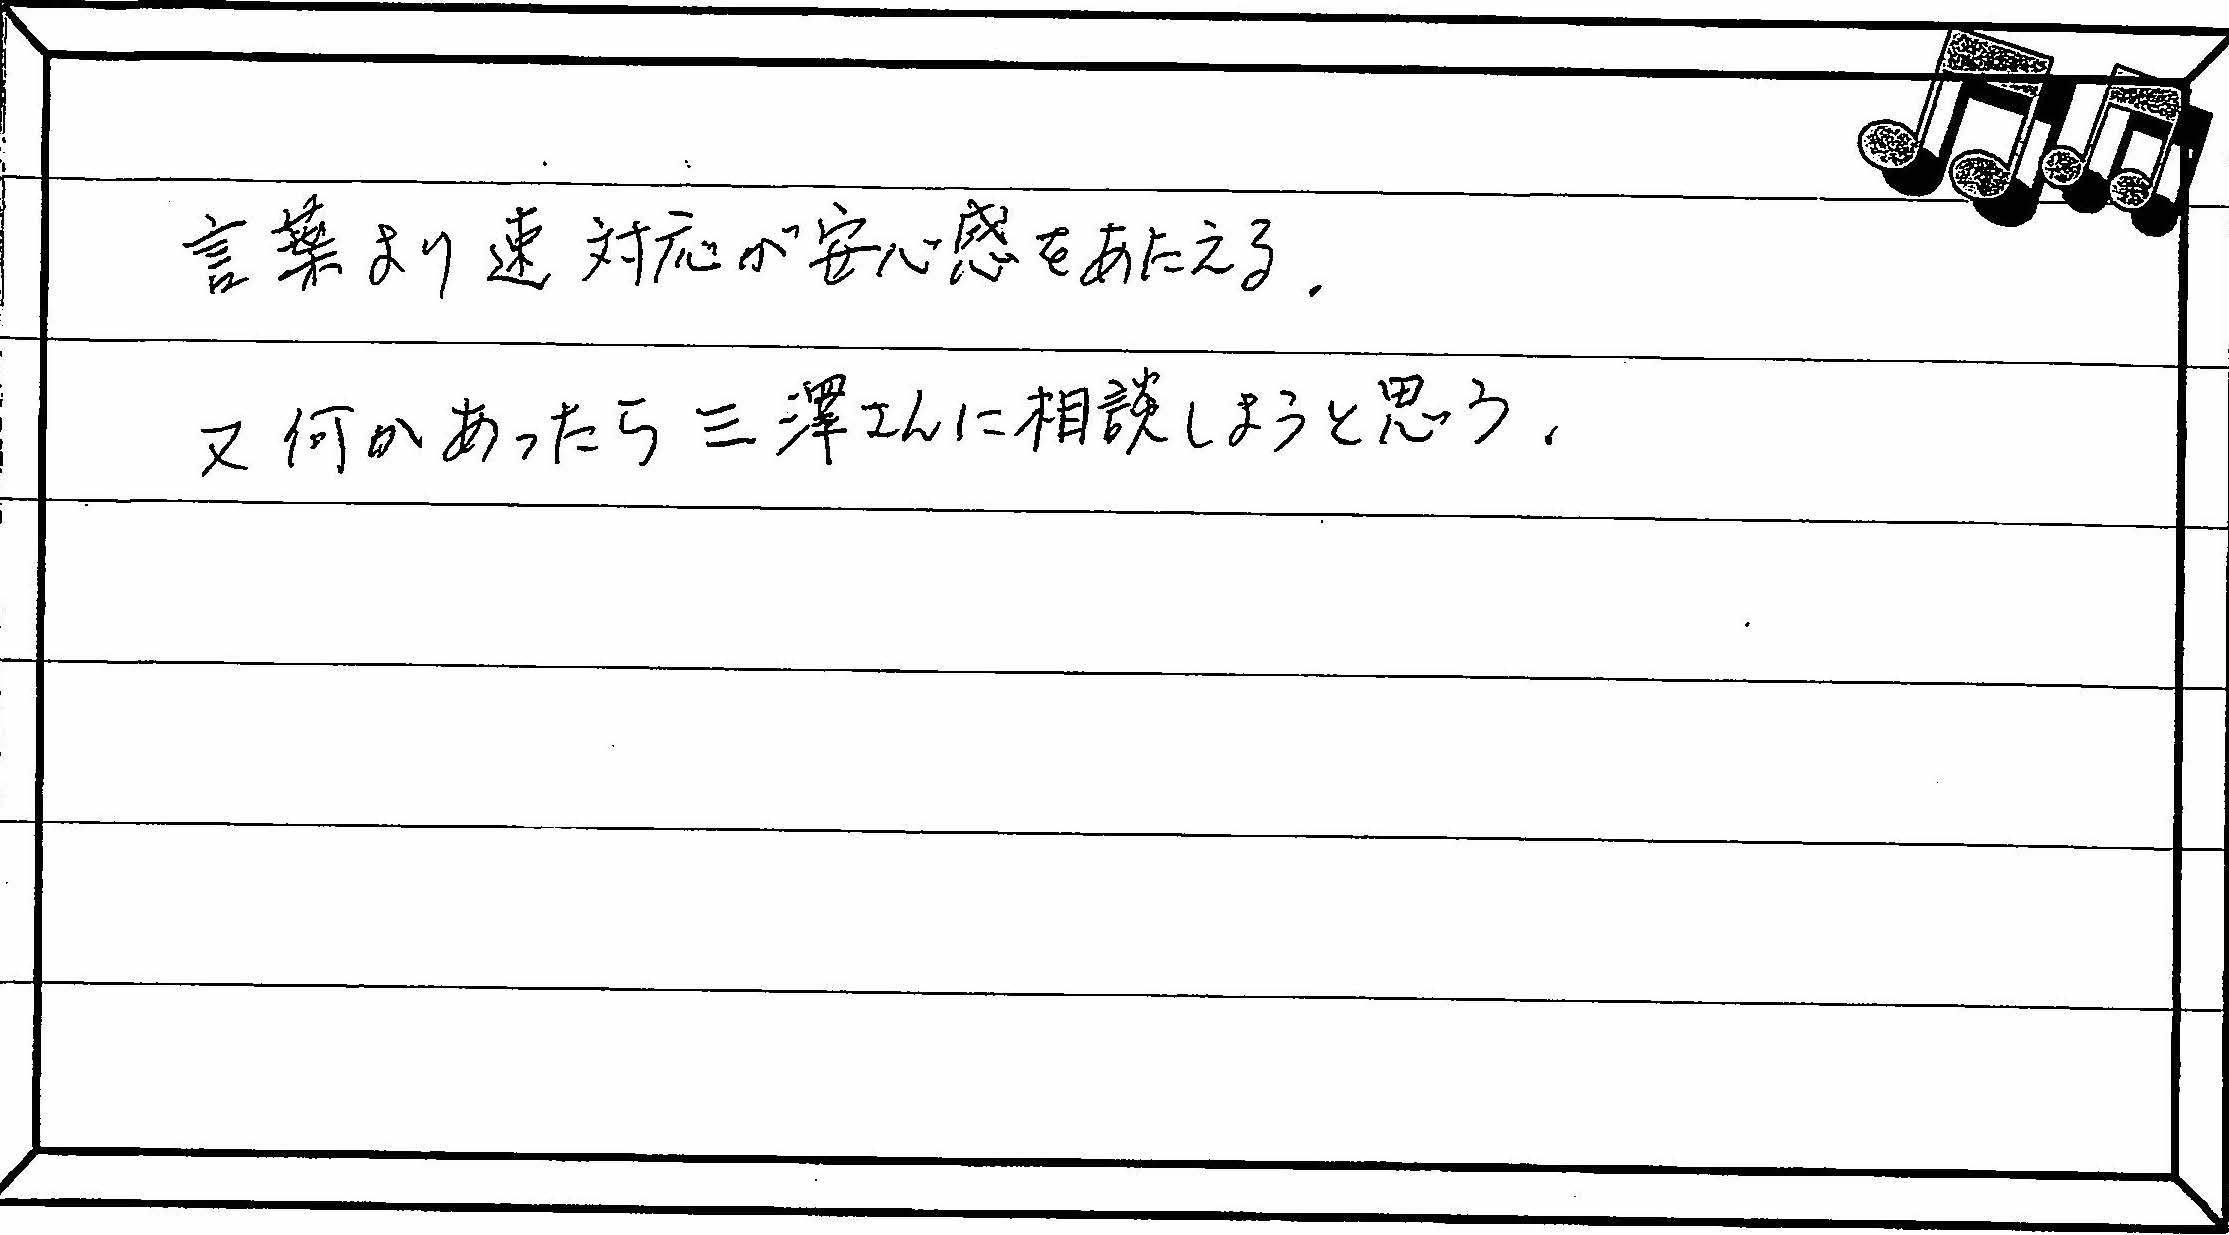 言葉より速対応が安心感をあたえる.
又何かあったら三澤さんに相談しようと思う.